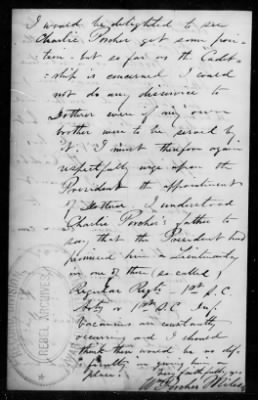 I would be delighted to see
Charlie Porcher get some posi-
tion - but so far as the Cadet-
ship is concerned I could
not do any disservice to
Mottrer were if my own
brother were to be served by
it. I must therefore again
respectfully urge upon the
President the appointment
of I understood
Charlie Porcher's father to
say that the President had
promised him a Lieutenancy
in one of the (so called)
Regular Regts - 1st S.C.
Arty or 1st S.C. Inf.
Vacancies are constantly
occurring and I should
think there would be no dif-
ficulty in giving him a
place.
Very faithfully yrs
Wm Porcher Miles
REBEL ARCHIVES